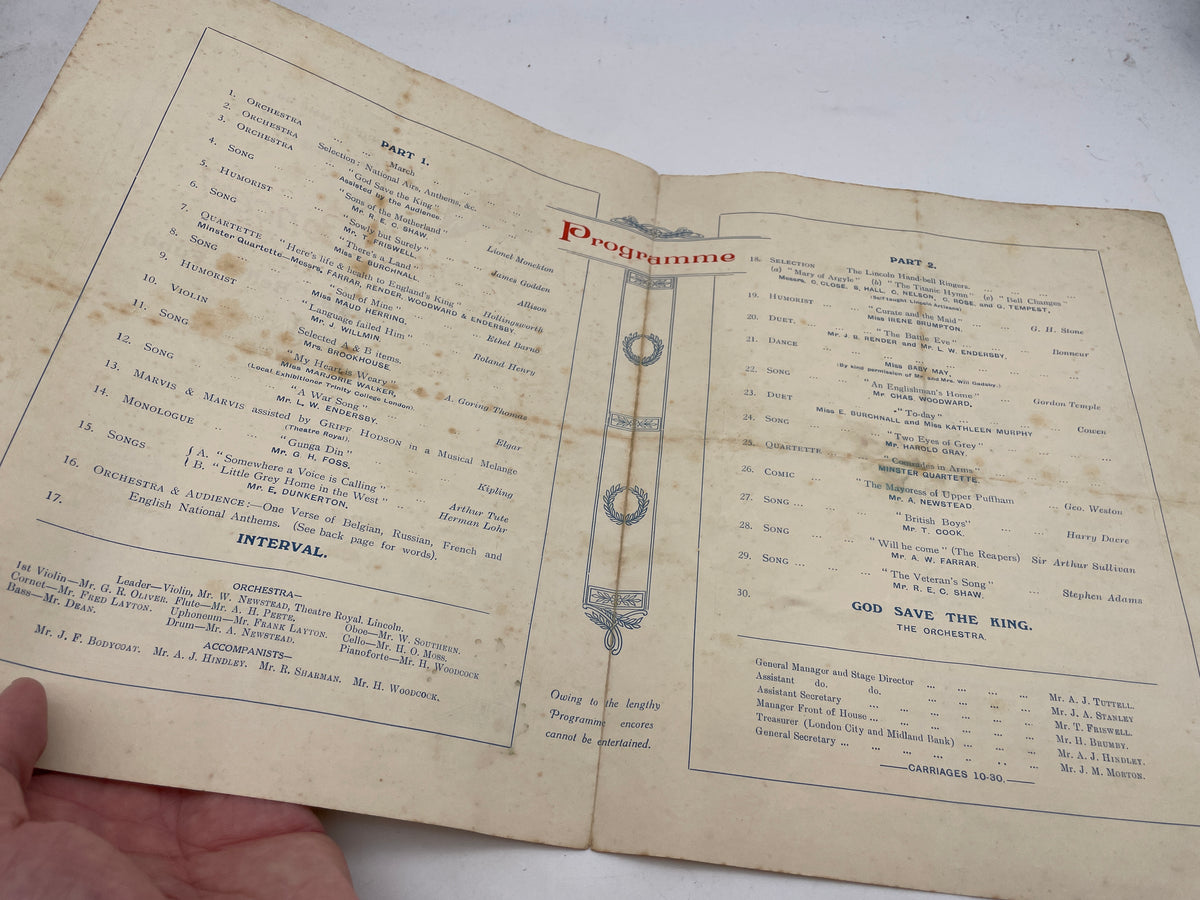 Programme
PART 1.
1. ORCHESTRA ... ... March ... ...
2. ORCHESTRA Selection: National Airs, Anthems, &c. ...
3. ORCHESTRA ... "God Save the King" ... ...
Assisted by the Audience.
4. SONG ... ... "Sons of the Motherland" ... Lionel Monckton
Mr. R. E. C. SHAW.
5. HUMORIST ... ... "Sowly but Surely" ... James Godden
Mr. T. FRISWELL.
6. SONG ... ... "There's a Land" ... Allison
Miss E. BURCHNALL.
7. QUARTETTE "Here's life & health to England's King" ... Hollingsworth
Minster Quartette—Messrs. FARRAR, RENDER, WOODWARD & ENDERSBY.
8. SONG ... ... "Soul of Mine" ... Ethel Barnö
Miss MAUD HERRING.
9. HUMORIST ... "Language failed Him" ... Roland Henry
Mr. J. WILLMIN.
10. VIOLIN ... Selected A & B items.
Mrs. BROOKHOUSE.
11. SONG ... ... "My Heart is Weary" ... A. Goring Thomas
Miss MARJORIE WALKER,
(Local Exhibitioner Trinity College London).
12. SONG ... ... "A War Song" ... Elgar
Mr. L. W. ENDERSBY.
13. MARVIS & MARVIS assisted by GRIFF HODSON in a Musical Melange
(Theatre Royal).
14. MONOLOGUE ... ... "Gunga Din" ... Kipling
Mr. G. H. FOSS.
15. SONGS { A. "Somewhere a Voice is Calling" ... Arthur Tute
{ B. "Little Grey Home in the West" ... Herman Lohr
Mr. E. DUNKERTON.
16. ORCHESTRA & AUDIENCE:—One Verse of Belgian, Russian, French and
English National Anthems. (See back page for words).
17. INTERVAL.
ORCHESTRA—
Leader—Violin, Mr. W. NEWSTEAD, Theatre Royal, Lincoln.
1st Violin—Mr. G. R. OLIVER. Flute—Mr. A. H. PEETE. Oboe—Mr. W. SOUTHERN.
Cornet—Mr. FRED LAYTON. Uphoneum—Mr. FRANK LAYTON. Cello—Mr. H. O. MOSS.
Bass—Mr. DEAN. Drum—Mr. A. NEWSTEAD. Pianoforte—Mr. H. WOODCOCK
ACCOMPANISTS—
Mr. J. F. BODYCOAT. Mr. A. J. HINDLEY. Mr. R. SHARMAN. Mr. H. WOODCOCK.
Owing to the lengthy
Programme encores
cannot be entertained.
PART 2.
18. SELECTION The Lincoln Hand-bell Ringers. ... ...
(a) "Mary of Argyle" (b) "The Titanic Hymn" (c) "Bell Changes"
Messrs. C. CLOSE, S. HALL, C. NELSON, C. ROSE, and G. TEMPEST,
(Self-taught Lincoln Artizans).
19. HUMORIST ... "Curate and the Maid" ... G. H. Stone
Miss IRENE BRUMPTON.
20. DUET. ... "The Battle Eve" ... Bonneur
Mr. J. B. RENDER and Mr. L. W. ENDERSBY.
21. DANCE ... ... ... ...
Miss BABY MAY,
(By kind permission of Mr. and Mrs. Will Gadsby.)
22. SONG ... "An Englishman's Home" ... Gordon Temple
Mr. CHAS. WOODWARD.
23. DUET ... "To-day" ... Cowen
Miss E. BURCHNALL and Miss KATHLEEN MURPHY
24. SONG ... "Two Eyes of Grey" ...
Mr. HAROLD GRAY.
25. QUARTETTE ... "Comrades in Arms" ...
MINSTER QUARTETTE.
26. COMIC ... "The Mayoress of Upper Puffham" Geo. Weston
Mr. A. NEWSTEAD
27. SONG ... ... "British Boys" ... Harry Dacre
Mr. T. COOK.
28. SONG ... "Will he come" (The Reapers) Sir Arthur Sullivan
Mr. A. W. FARRAR.
29. SONG ... ... "The Veteran's Song" ... Stephen Adams
Mr. R. E. C. SHAW.
30. GOD SAVE THE KING.
THE ORCHESTRA.
General Manager and Stage Director ... ... Mr. A. J. TUTTELL.
Assistant do. do. ... ... Mr. J. A. STANLEY
Assistant Secretary ... ... Mr. T. FRISWELL.
Manager Front of House ... ... Mr. H. BRUMBY.
Treasurer (London City and Midland Bank) ... Mr. A. J. HINDLEY.
General Secretary ... ... Mr. J. M. MORTON.
—CARRIAGES 10-30.—